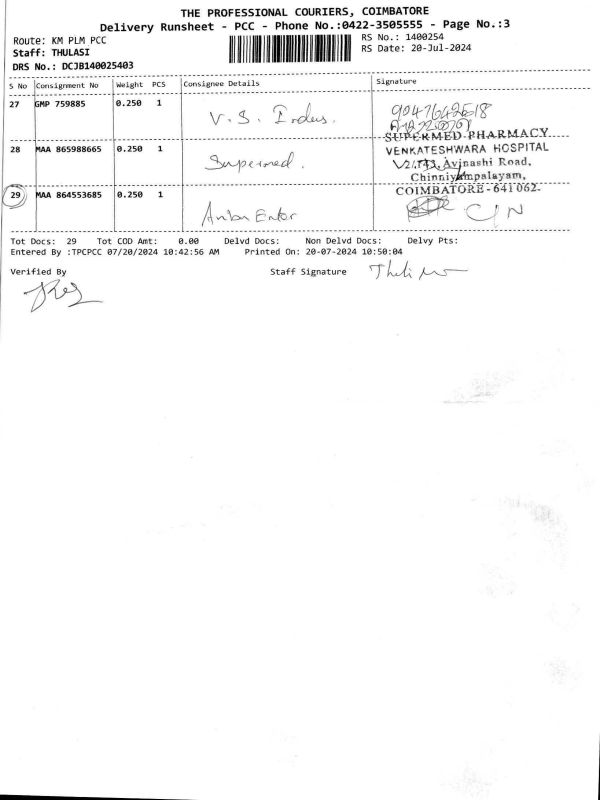 THE PROFESSIONAL COURIERS, COIMBATORE
Delivery Runsheet - PCC - Phone No.:0422-3505555 - Page No.:3
Route: KM PLM PCC
Staff: THULASI
DRS No.: DCJB140025403
RS No.: 1400254
RS Date: 20-Jul-2024
S No Consignment No Weight PCS Consignee Details Signature
27 GMP 759885 0.250 1 V. S. Indus.
28 MAA 865988665 0.250 1 Supermed.
SUPERMED PHARMACY
VENKATESHWARA HOSPITAL
Avinashi Road,
Chinniyampalayam,
COIMBATORE-641062.
29 MAA 864553685 0.250 1 C/N
Tot Docs: 29 Tot COD Amt: 0.00 Delvd Docs: Non Delvd Docs: Delvy Pts:
Entered By :TPCPCC 07/20/2024 10:42:56 AM Printed On: 20-07-2024 10:50:04
Verified By Staff Signature